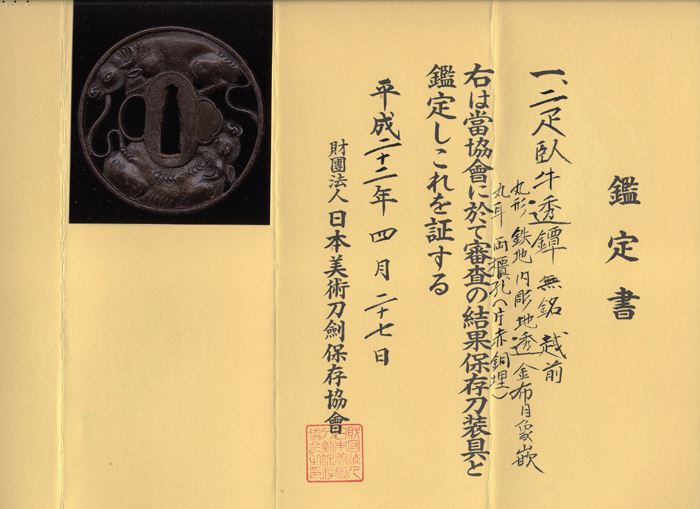 鑑定書
一、二疋臥牛透鐔 無銘 越前
丸形 鉄地 肉彫地透 金布目象嵌
丸耳 両櫃孔(片赤銅埋)
右は當協會に於て審査の結果保存刀装具と
鑑定しこれを証する
平成二十二年四月二十七日
財團法人 日本美術刀劍保存協會